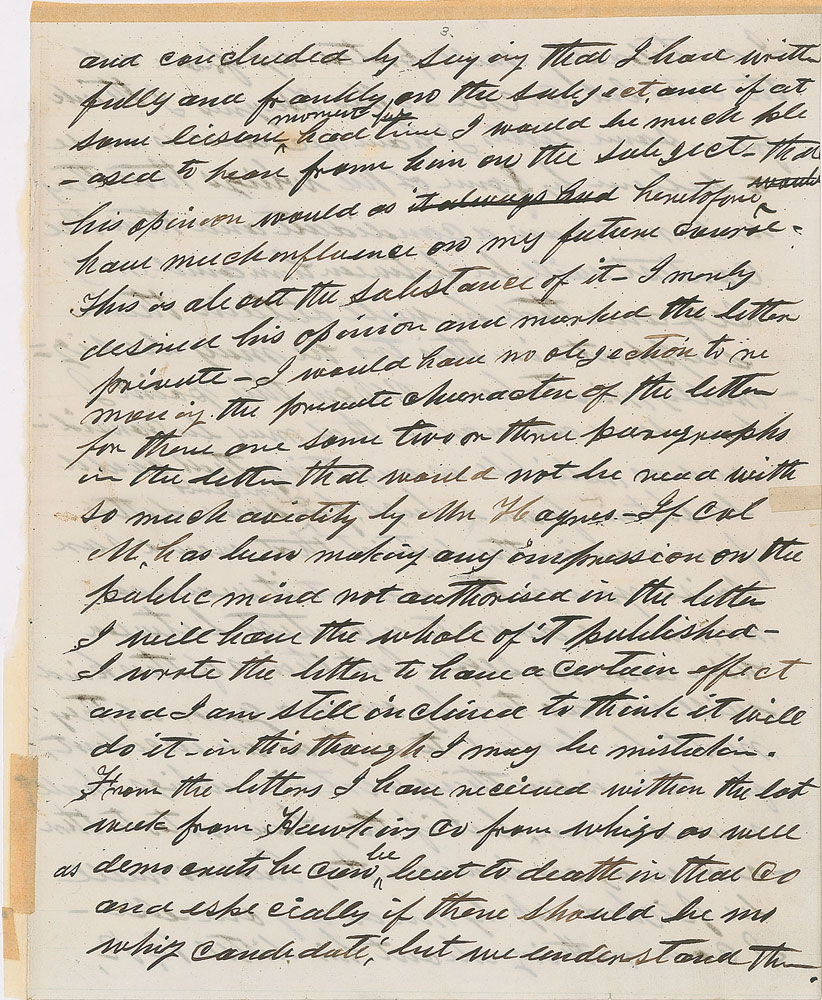 3.
and concluded by saying that I had written
fully and frankly on the subject and if at
moment he
some leisure had time I would be much ple
-ased to hear from him on the subject - that
his opinion would as it always had heretofore would
have much influence on my future course -
This is about the substance of it - I merely
desired his opinion and marked the letter
private - I would have no objection to re
moving the private character of the letter
for there are some two or three paragraphs
in the letter that would not be read with
so much avidity by Mr Haynes - If Col
M. has been making any impression on the
public mind not authorised in the letter
I will have the whole of 'T published -
I wrote the letter to have a certain effect
and I am still inclined to think it will
do it - in this though I may be mistaken.
From the letters I have received within the last
week from Hawkins Co from whigs as well
as democrats he can be beat to death in that Co
and especially if there should be no
whig candidate, but we understand the